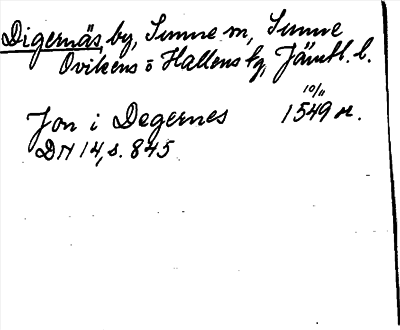 Digernäs, by, Sunne sn, Sunne
Ovikens o Hallens tg, Jämtl. l.
10/11
Jon i Degernes 1549 or.
DN 14, s. 845